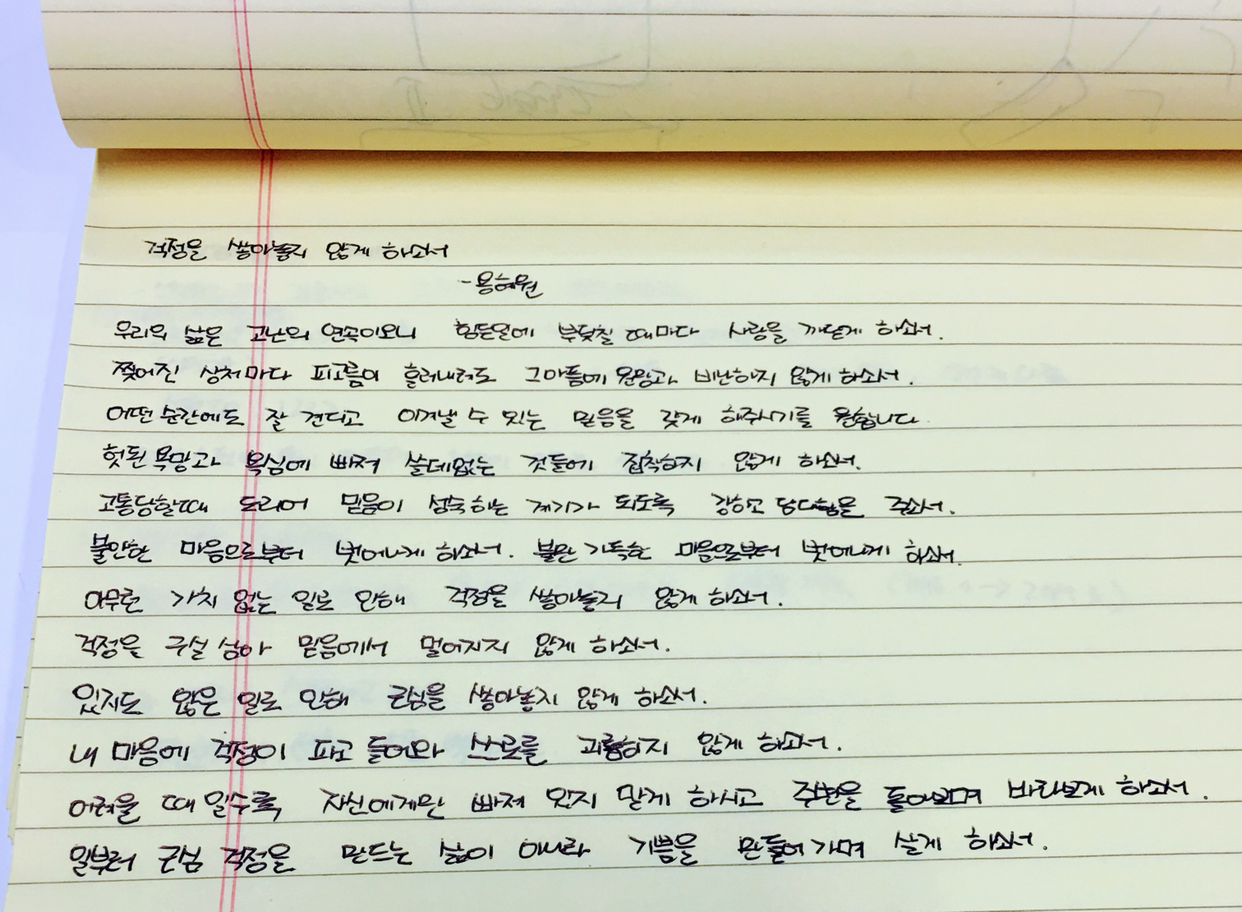 걱정을 쌓아놓지 않게 하소서
-용혜원
우리의 삶은 고난의 연속이오니 힘든일에 부딪칠 때마다 사랑을 깨닫게 하소서.
찢어진 상처마다 피고름이 흘러내려도 그아픔에 원망과 비난하지 않게 하소서.
어떤 순간에도 잘 견디고 이겨낼 수 있는 믿음을 갖게 해주시기를 원합니다.
헛된 욕망과 욕심에 빠져 쓸데없는 것들에 집착하지 않게 하소서.
고통당할때 도리어 믿음이 성숙하는 계기가 되도록 강하고 담대함을 주소서.
불안한 마음으로부터 벗어나게 하소서. 불만 가득한 마음으로부터 벗어나게 하소서.
아무런 가치 없는 일로 인해 걱정을 쌓아놓지 않게 하소서.
걱정을 구실 삼아 믿음에서 멀어지지 않게 하소서.
있지도 않은 일로 인해 근심을 쌓아놓지 않게 하소서.
내 마음에 걱정이 파고 들어와 스스로를 괴롭히지 않게 하소서.
어려울 때 일수록 자신에게만 빠져 있지 말게 하시고 주변을 돌아보며 바라보게 하소서.
일부러 근심 걱정을 만드는 삶이 아니라 기쁨을 만들어 가며 살게 하소서.